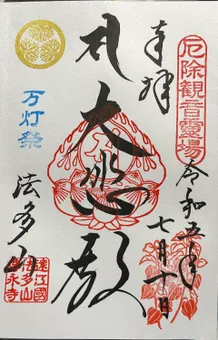 奉拝
厄除観音霊場
令和五年
七月十日
大悲殿
万灯祭
法多山
遠江国
法多山
尊永寺